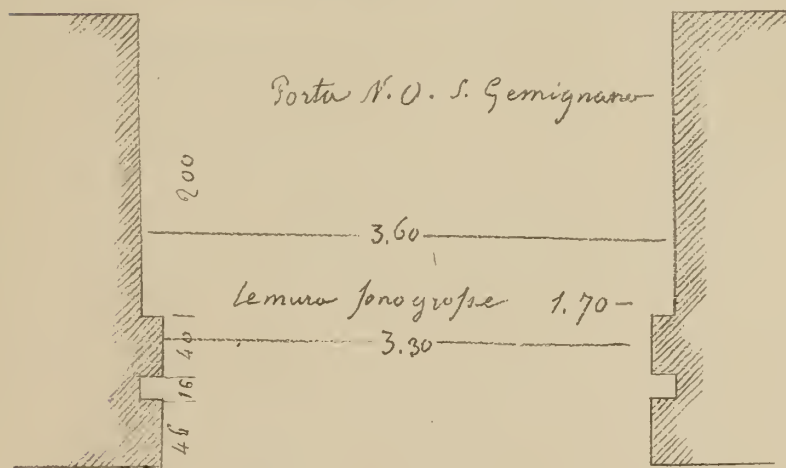 Porta N. O. S. Gemignano
200
3.60
le mura sono grosse 1.70
40
3.30
16
46